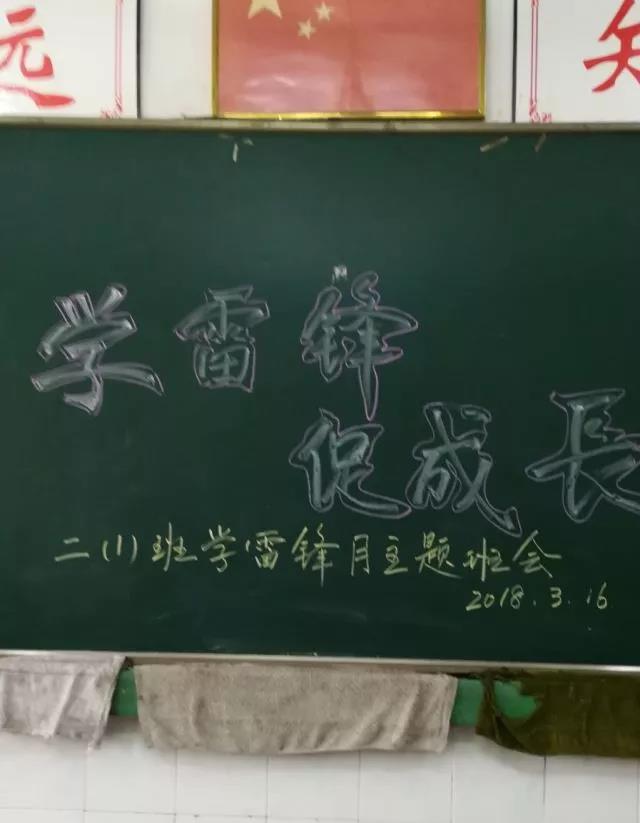 元
学雷锋
促成長
二(1)班学雷锋月主题班会
2018.3.16